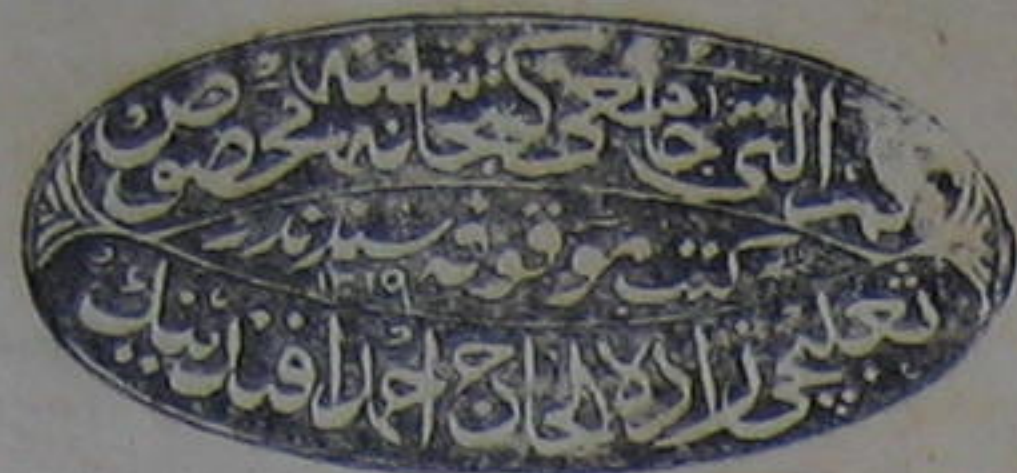 التى جامعى كتبخانه سنه مخصوص
كتب موقوفه سندندر
١٣١٩
نعلبجى زاده الحاج احمد افندينك